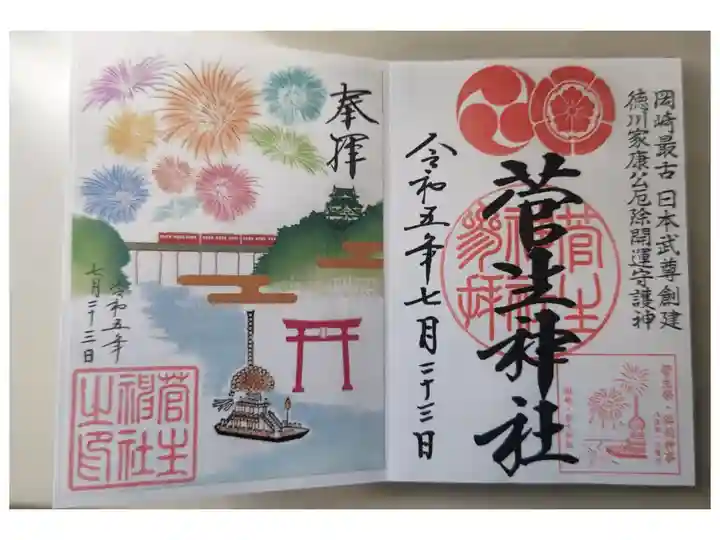 岡崎最古 日本武尊創建
徳川家康公厄除開運守護神
菅生神社
令和五年七月二十三日
奉拝
令和五年
七月二十三日
菅生
神社
之印